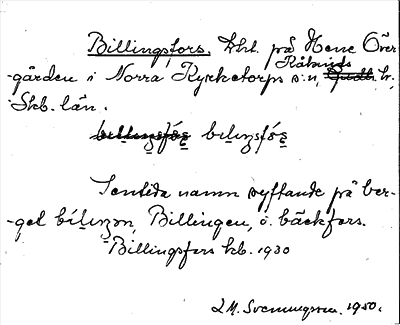 Billingsfors, lht. på Hene Över-
Kåkinds
-gården i Norra Kyrketorps s:n, Gudh. hr,
Skb. län.
bilingsfǫs bilingsfǫs
Sentida namn syftande på ber-
-get bilingən, Billingen, o. bäckfors.
Billingsfors kb. 1930
L. M. Svenungsson. 1950.